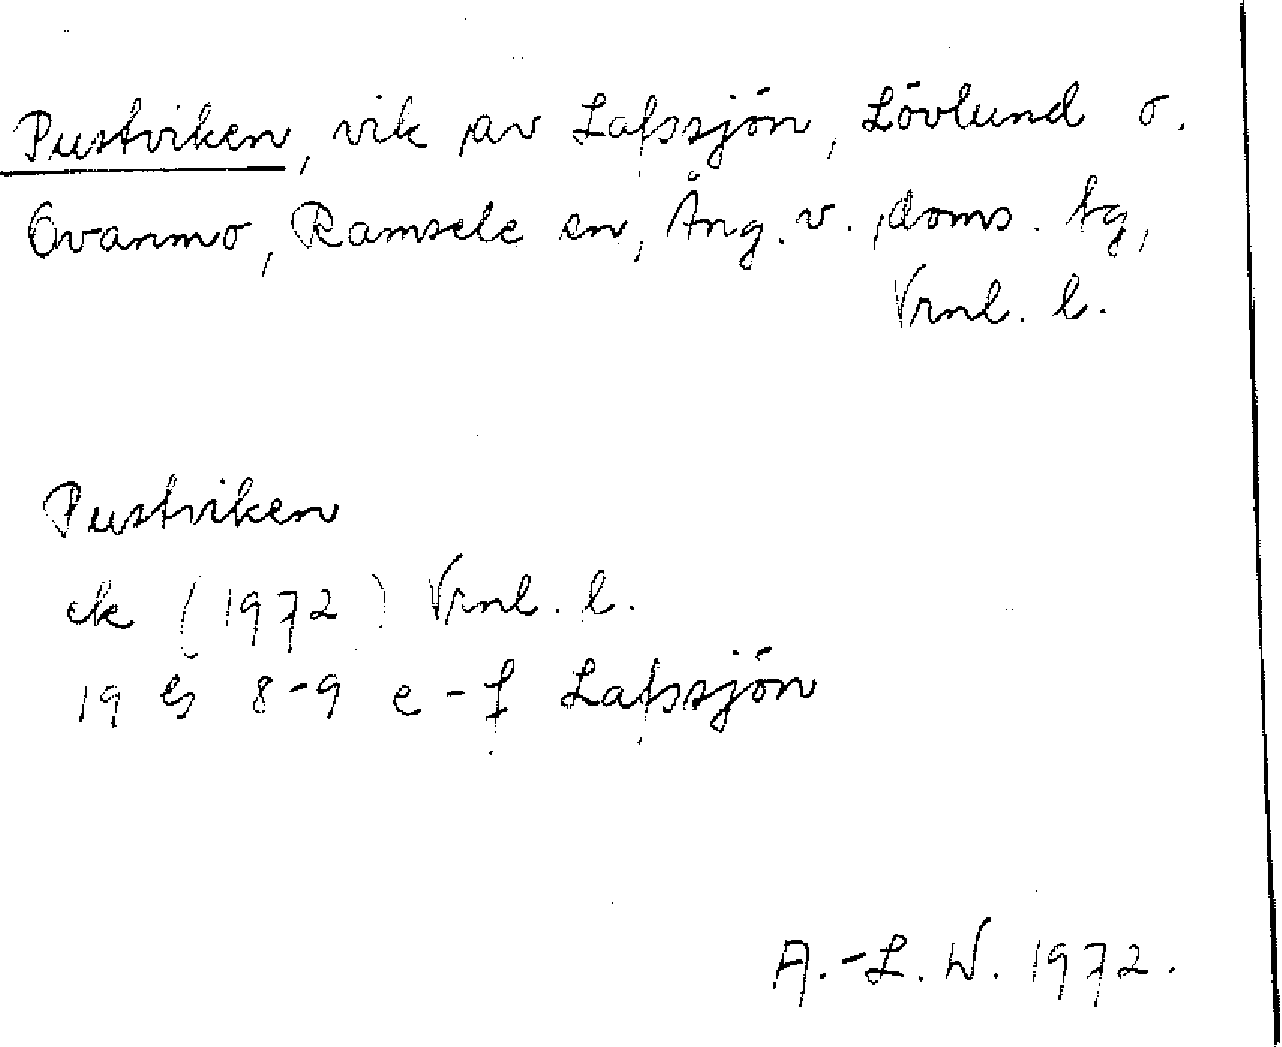 Pustviken, vik av Lafssjön, Lövlund o.
Ovanmo, Ramsele sn, Ång. v. doms. tg,
Vrnl. l.
Pustviken
ek (1972) Vrnl. l.
19 G 8-9 e-f Lafssjön
A.-L. W. 1972.